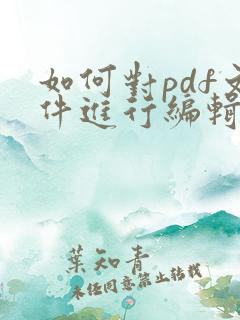 如何對pdf文
件進行編輯
葉知青
未經同意禁止轉載